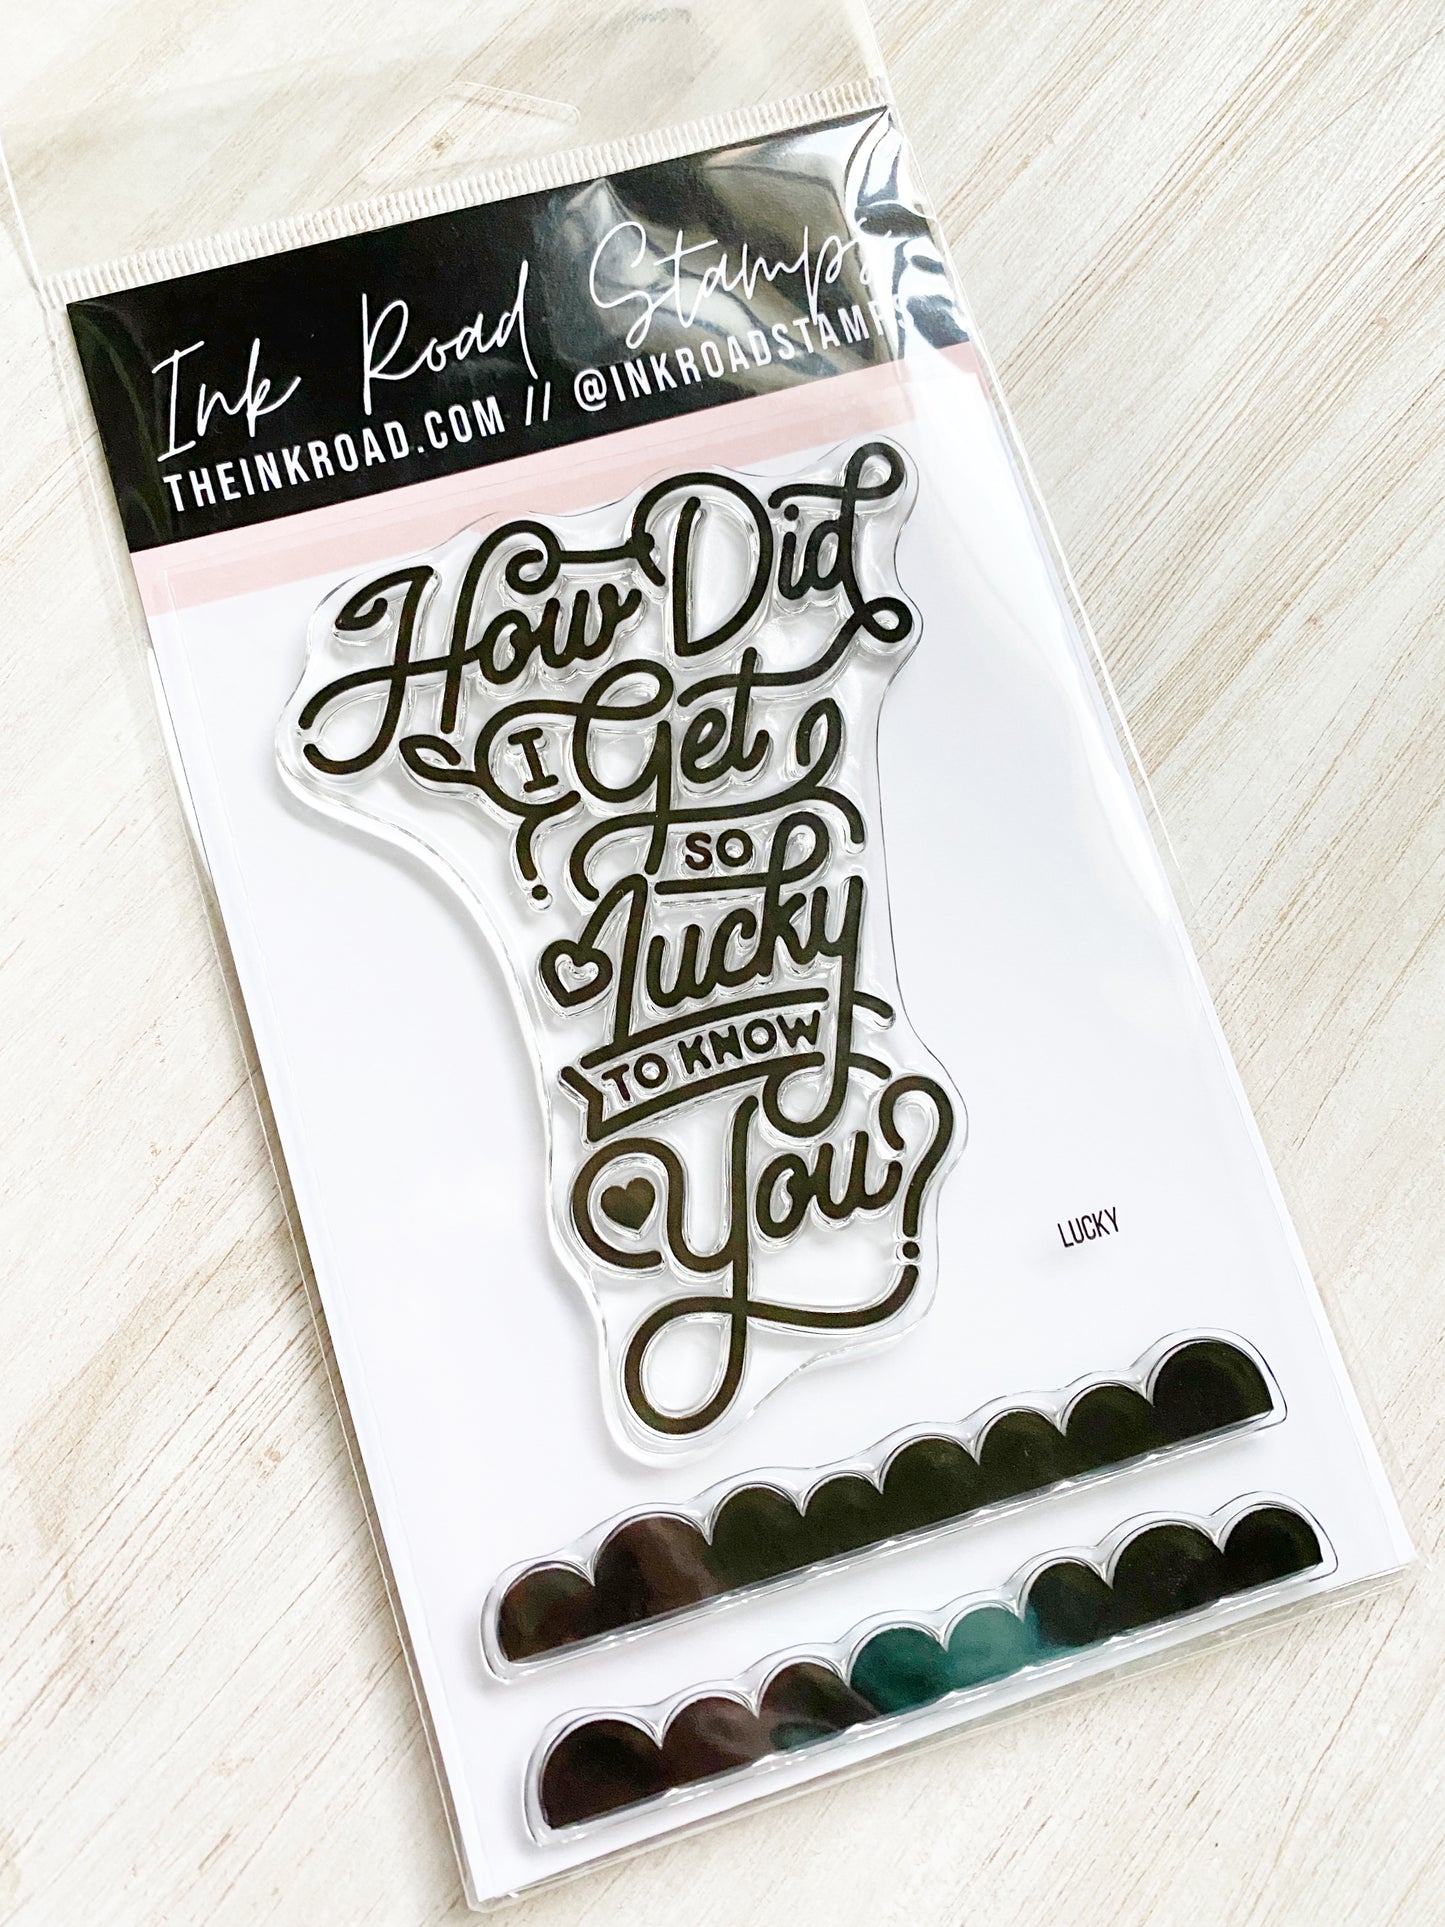 Ink Road Stamps
THEINKROAD.COM // @INKROADSTAMPS
How Did
I Get
SO
Lucky
TO KNOW
You?
LUCKY